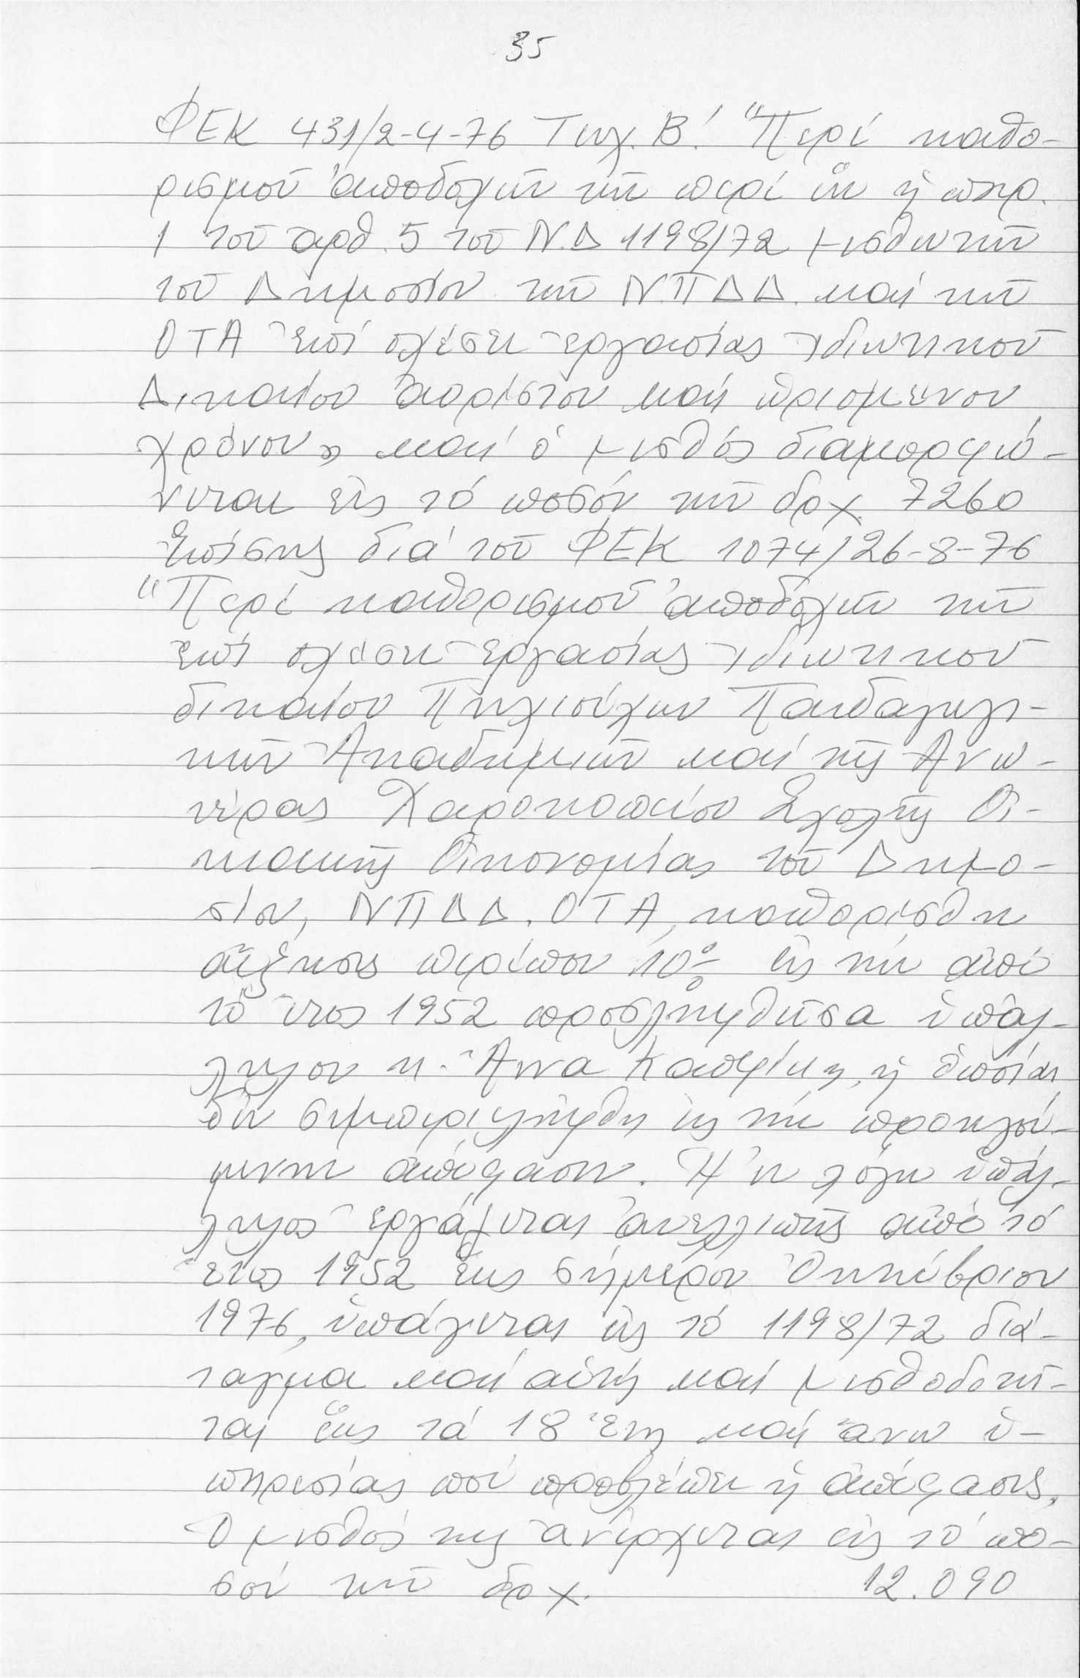 35
ΦΕΚ 431/2-4-76 Τευχ. Β! "Περί καθο-
ρισμοῦ ἀποδοχῶν τῶν περί ὧν ἡ παρ.
1 τοῦ ἀρθ. 5 τοῦ Ν.Δ 1198/72 μισθωτῶν
τοῦ Δημοσίου τῶν ΝΠΔΔ. καί τῶν
ΟΤΑ ἐπί σχέσει ἐργασίας ἰδιωτικοῦ
Δικαίου ἀορίστου καί ὡρισμένου
χρόνου» καί ὁ μισθός διαμορφώ-
νεται εἰς τό ποσόν τῶν δρχ. 7260
Ἐπίσης διά τοῦ ΦΕΚ 1074/26-8-76
"Περί καθορισμοῦ ἀποδοχῶν τῶν
ἐπί σχέσει ἐργασίας ἰδιωτικοῦ
δικαίου Πτυχιούχων Παιδαγωγι-
κῶν Ἀκαδημιῶν καί τῆς Ἀνω-
τέρας Χαροκοπείου Σχολῆς Οἰ-
κιακῆς Οἰκονομίας τοῦ Δημο-
σίου, ΝΠΔΔ. ΟΤΑ, καθορίσθη
αὔξησις περίπου 10% εἰς τήν ἀπό
τό ἔτος 1952 προσληφθεῖσα ὑπάλ-
ληλον κ. Ἄννα, ἡ ὁποία
δέν συμπεριελήφθη εἰς τήν προηγου-
μένην ἀπόφασιν. Ἡ ἐν λόγω ὑπάλ-
ληλος ἐργάζεται ἀνελλιπῶς ἀπό τό
ἔτος 1952 ἕως σήμερον Ὀκτώβριον
1976, ὑπάγεται εἰς τό 1198/72 διά-
ταγμα καί αὐτή καί μισθοδοτεῖ-
ται ἕως τά 18 ἔτη καί ἄνω ὑ-
πηρεσίας πού προβλέπει ἡ ἀπόφασις.
Ὁ μισθός της ἀνέρχεται εἰς τό πο-
σόν τῶν δρχ. 12.090